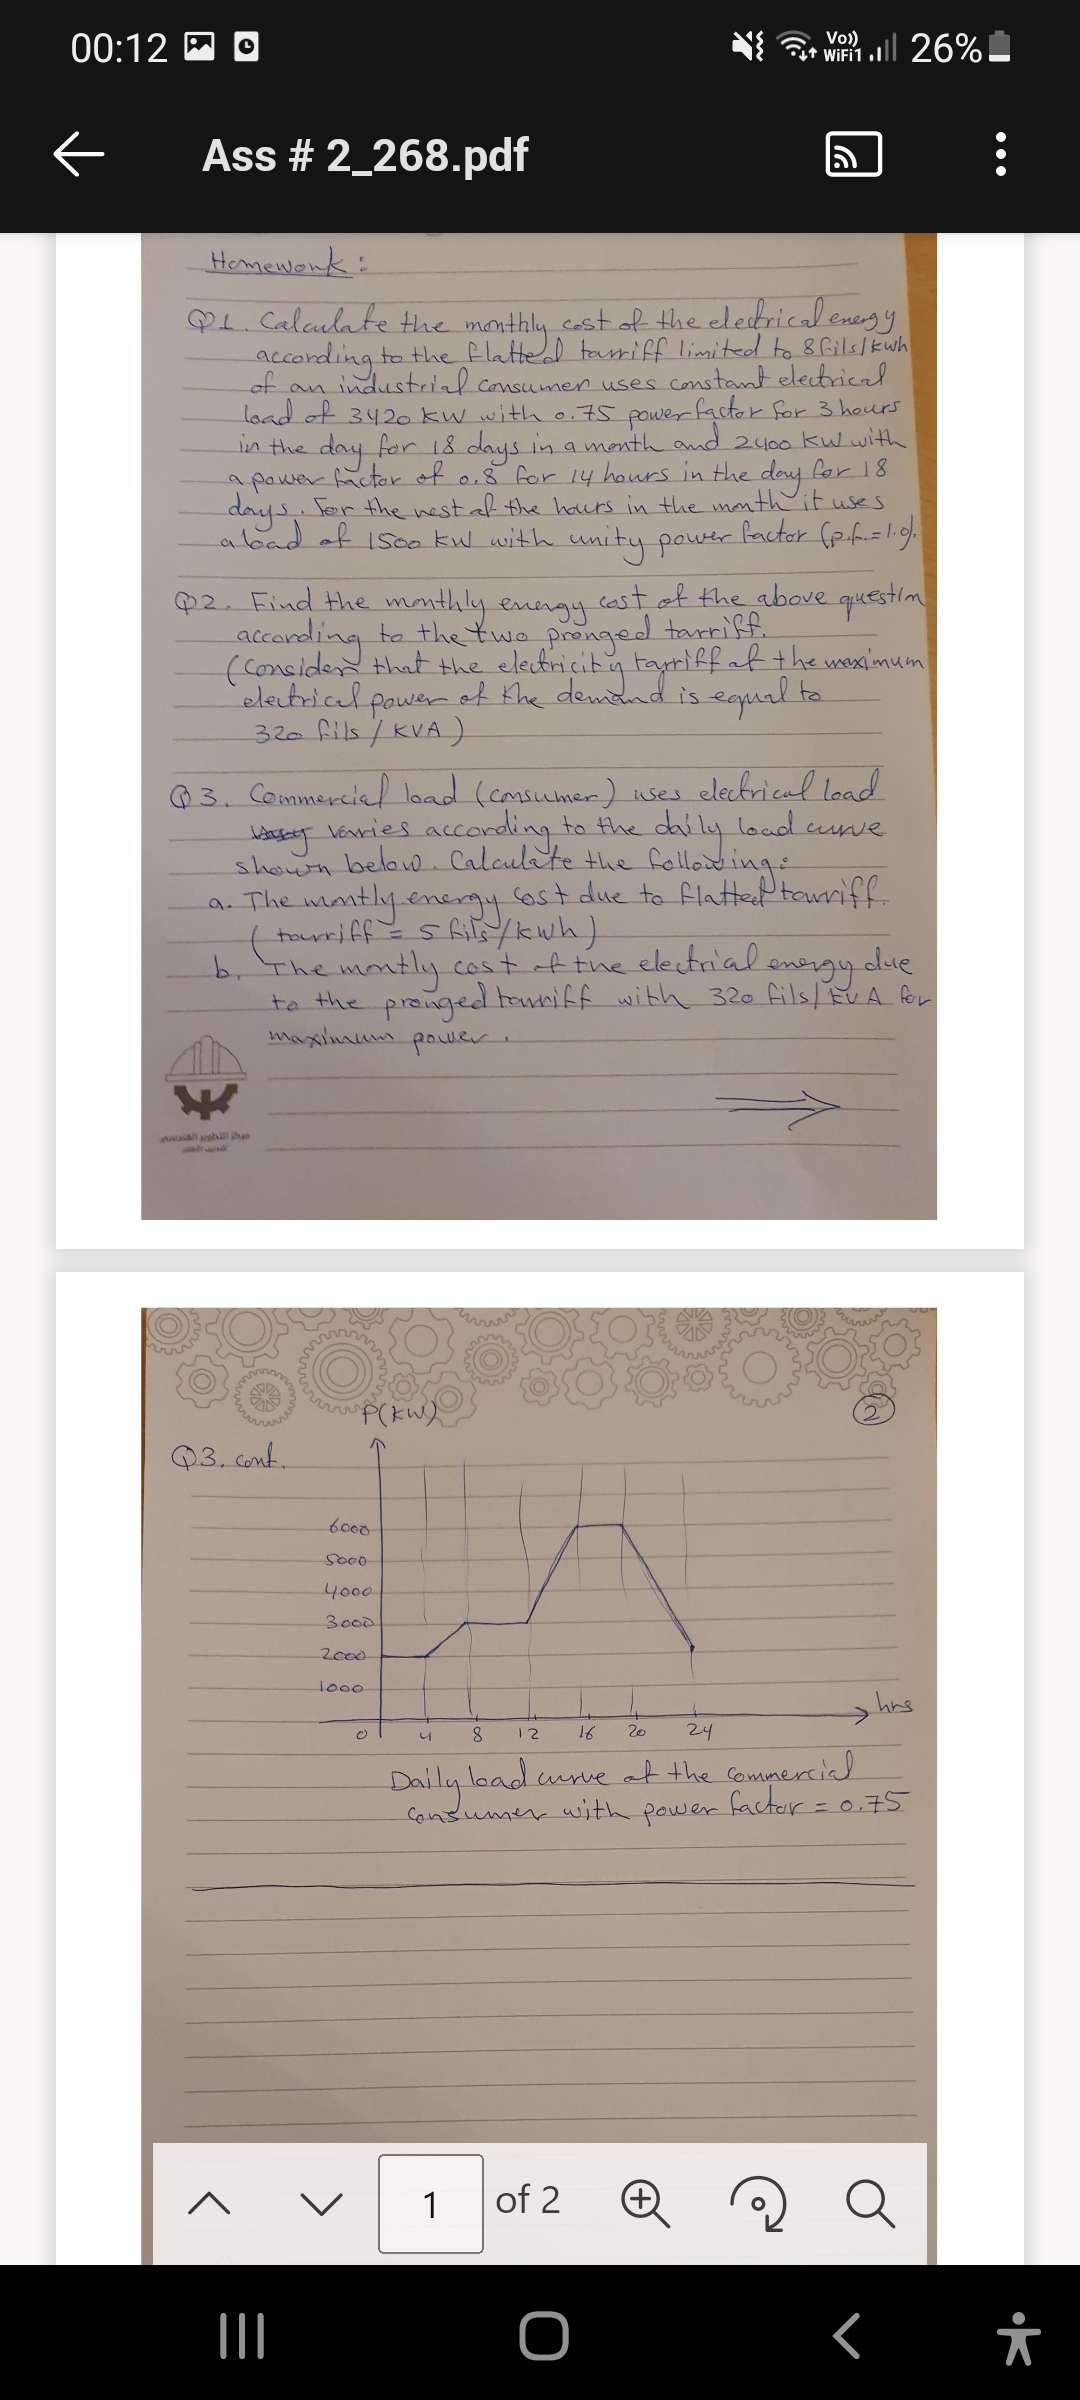 00:12
Vo))
WiFi1
26%
Ass # 2_268.pdf
Homework :
Q1. Calculate the monthly cost of the electrical energy
according to the flatted tarriff limited to 8 fils/kwh
of an industrial consumer uses constant electrical
load of 3420 KW with 0.75 power factor for 3 hours
in the day for 18 days in a month and 2400 KW with
a power factor of 0.8 for 14 hours in the day for 18
days. For the rest of the hours in the month it uses
a load of 1500 KW with unity power factor (p.f.=1.0).
Q2. Find the monthly energy cost of the above question
according to the two pronged tarriff.
(Consider that the electricity tarriff of the maximum
electrical power of the demand is equal to
320 fils / KVA )
Q3. Commercial load (consumer) uses electrical load
varies according to the daily load curve
shown below. Calculate the following:
a. The montly energy cost due to flatted tarriff.
( tarriff = 5 fils/kwh )
b. The montly cost of the electrial energy due
to the pronged tarriff with 320 fils/KVA for
maximum power.
مركز التطوير الهندسي
P(KW)
2
Q3. cont.
6000
5000
4000
3000
2000
1000
0 4 8 12 16 20 24
hrs
Daily load curve of the commercial
consumer with power factor = 0.75
1 of 2